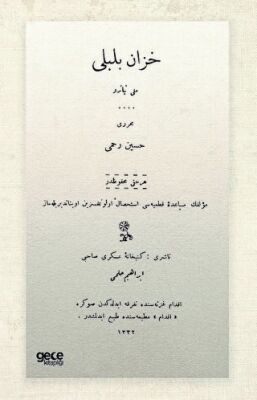 خزان بلبلی
ملی تیاترو
....
محرری
حسین رحمی
هر حقی محفوظدر
مؤلفك مساعدهٔ قطعیه‌سی استحصال اولونمقسزین اویناندیریله‌ماز
ناشری : كتبخانهٔ عسكری صاحبی
ابراهیم حلمی
اقدام غزته‌سنده تفرقه ایدلدكدن صوكره
« اقدام » مطبعه‌سنده طبع ایدلمشدر .
١٣٣٢
gece
kitaplığı